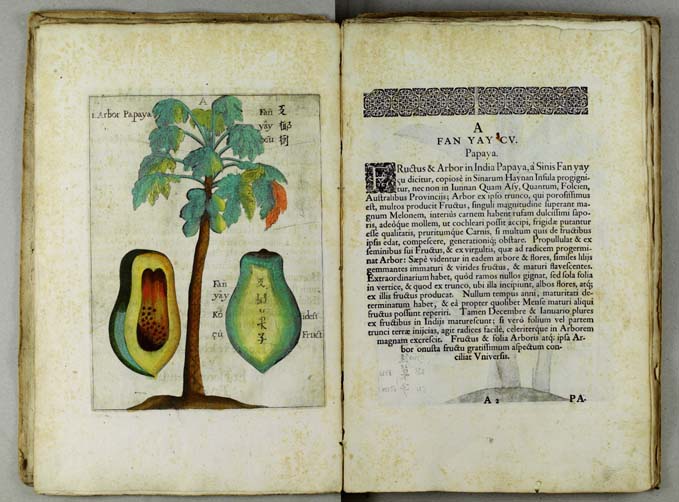 A
1. Arbor Papaya
Fan
yày
Fan
yày
Kò
çù
子
idest
Fruct
A
FAN YAY CV.
Papaya.
FRuctus & Arbor in India Papaya, à Sinis Fan yay
çu dicitur, copiosè in Sinarum Haynan Insula progigni-
tur, nec non in Iunnan Quam Asy, Quantum, Folcien,
Australibus Provincijs; Arbor ex ipso trunco, qui porosissimus
est, multos producit Fructus, singuli magnitudine superant ma-
gnum Melonem, interiùs carnem habent rufam dulcissimi sapo-
ris, adeòque mollem, ut cochleari possit accipi, frigidæ putantur
esse qualitatis, pruritumque Carnis, si multum quis de fructibus
ipsis edat, compescere, generationiq; obstare. Propullulat & ex
seminibus sui Fructus, & ex virgultis, quæ ad radicem progermi-
nat Arbor: Sæpè videntur in eadem arbore & flores, similes lilijs
gemmantes immaturi & virides fructus, & maturi flavescentes.
Extraordinarium habet, quòd ramos nullos gignat, sed sola folia
in vertice, & quod ex trunco, ubi illa incipiunt, albos flores, atq;
ex illis fructus producat. Nullum tempus anni, maturitati de-
terminatum habet, & eâ propter quolibet Mense maturi aliqui
fructus possunt reperiri. Tamen Decembre & Ianuario plures
ex fructibus in Indijs maturescunt; si verò folium vel partem
trunci terræ inijcias, agit radices facilè, celeriterque in Arborem
magnam excrescit. Fructus & folia Arboris atq; ipsa Ar-
bor onusta fructu gratissimum aspectum con-
ciliat Vniversis.
A 2 PA-